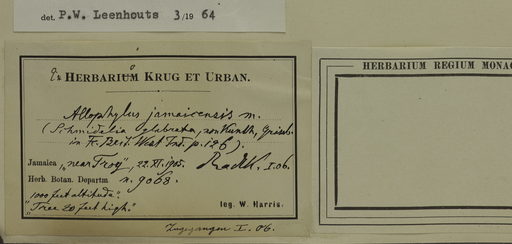 det. P.W. Leenhouts 3/19 64
Ex HERBARIUM KRUG ET URBAN.
HERBARIUM REGIUM MONAC
Allophylus jamaicensis m.
(Schmidelia glabrata, non Kunth, Griseb.
in Fl. Brit. West Ind. p. 126).
Jamaica, "near Troy", 22.XI.1905. Radlk. I.06.
Herb. Botan. Departm n. 9068.
1000 feet altitude".
"Tree 20 feet high." leg. W. Harris.
Zugegangen I. 06.